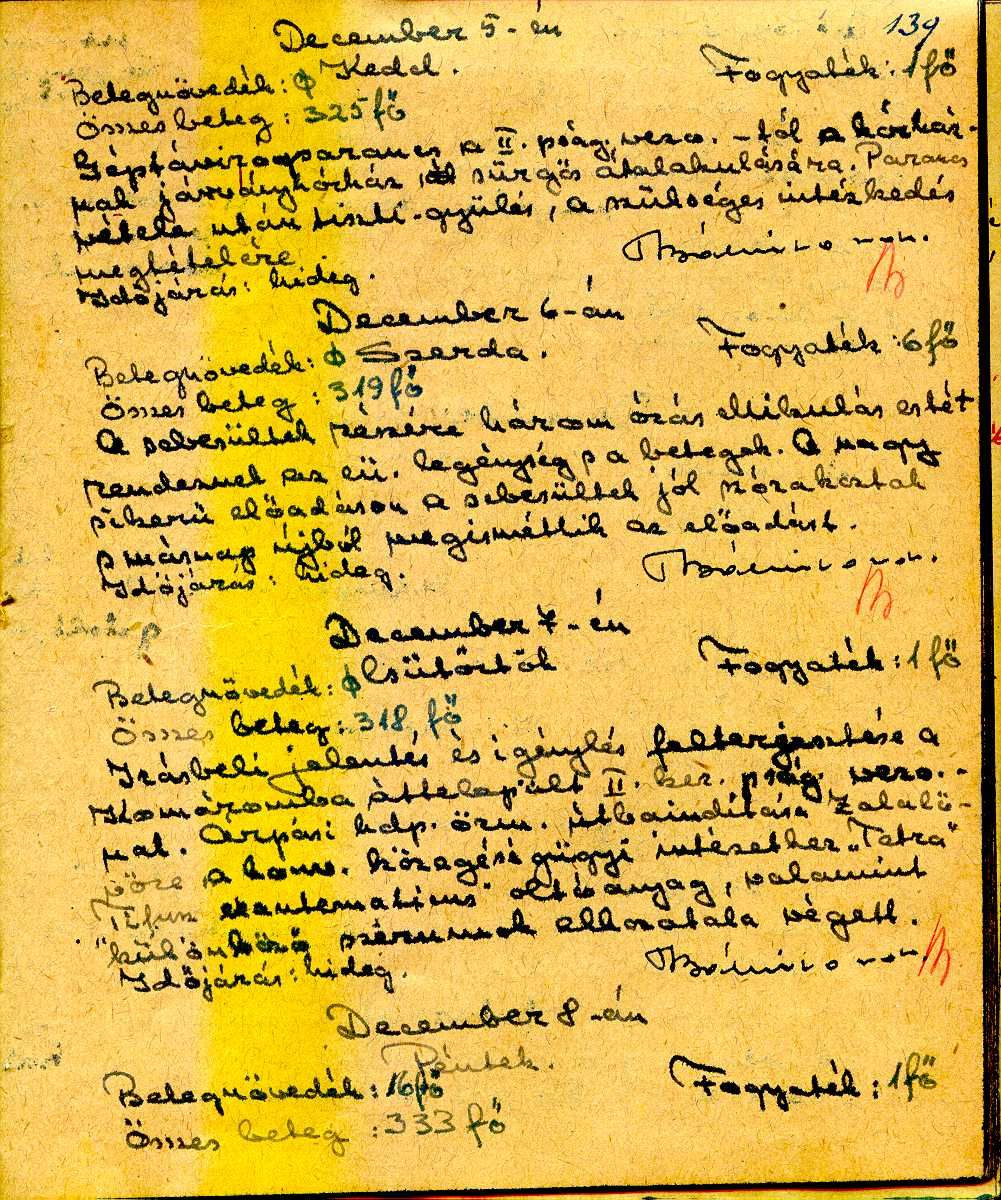 139
December 5-én
Kedd.
Betegnövedék: φ Fogyaték: 1 fő
Összes beteg: 325 fő
Géptávirógparancs a II. pság. vezo.-tól a kórház-
nak járványkórház sürgős átalakulására. Parancs
vétele után tiszti-gyülés, a szükséges intézkedés
megtételére
Időjárás: hideg.
December 6-án
Betegnövedék: φ Szerda. Fogyaték: 6 fő
Összes beteg: 319 fő
A sebesültek részére három órás Mikulás estét
rendeznek az eü. legénység s a betegek. A nagy
sikerü előadáson a sebesültek jól szórakoztak
s másnap újból megismétlik az előadást.
Időjárás: hideg.
December 7-én
Betegnövedék: φ Csütörtök Fogyaték: 1 fő
Összes beteg: 318, fő
Irásbeli jelentés és igénylés felterjesztése a
Komáromba áttelepült II. ker. pság. vezo.-
nak. Árpási hdp. őrm. útbaindítása Zalalö-
vőre a honv. közegészségügyi intézethez „Tetra"
Tifusz exantematicus oltóanyag, valamint
különböző szérumok elhozatala végett.
Időjárás: hideg.
December 8-án
Péntek.
Betegnövedék: 16 fő Fogyaték: 1 fő
Összes beteg: 333 fő